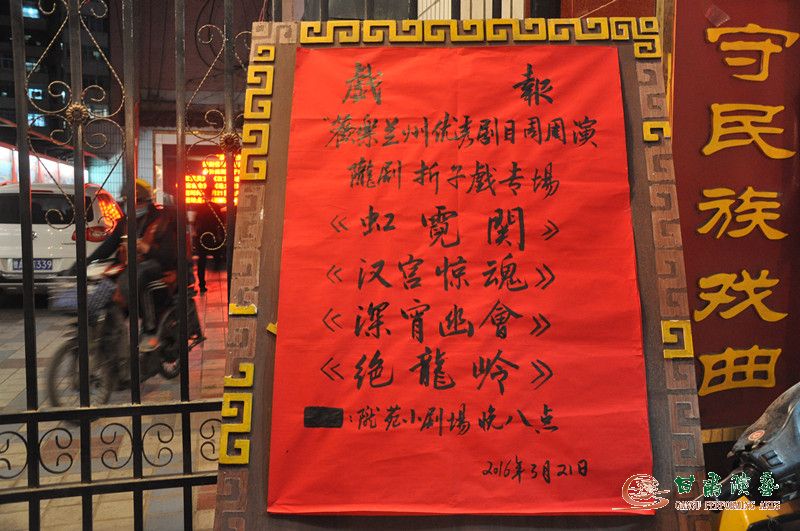 戲 報
"薇樂兰州优秀剧目周周演
陇剧 折子戏专場
《虹霓関》
《汉宫惊魂》
《深宵幽會》
《绝龍岭》
:陇苑小剧場 晚八点
2016年3月21日
守民族戏曲
339
甘肃演艺
GANSU PERFORMING ARTS